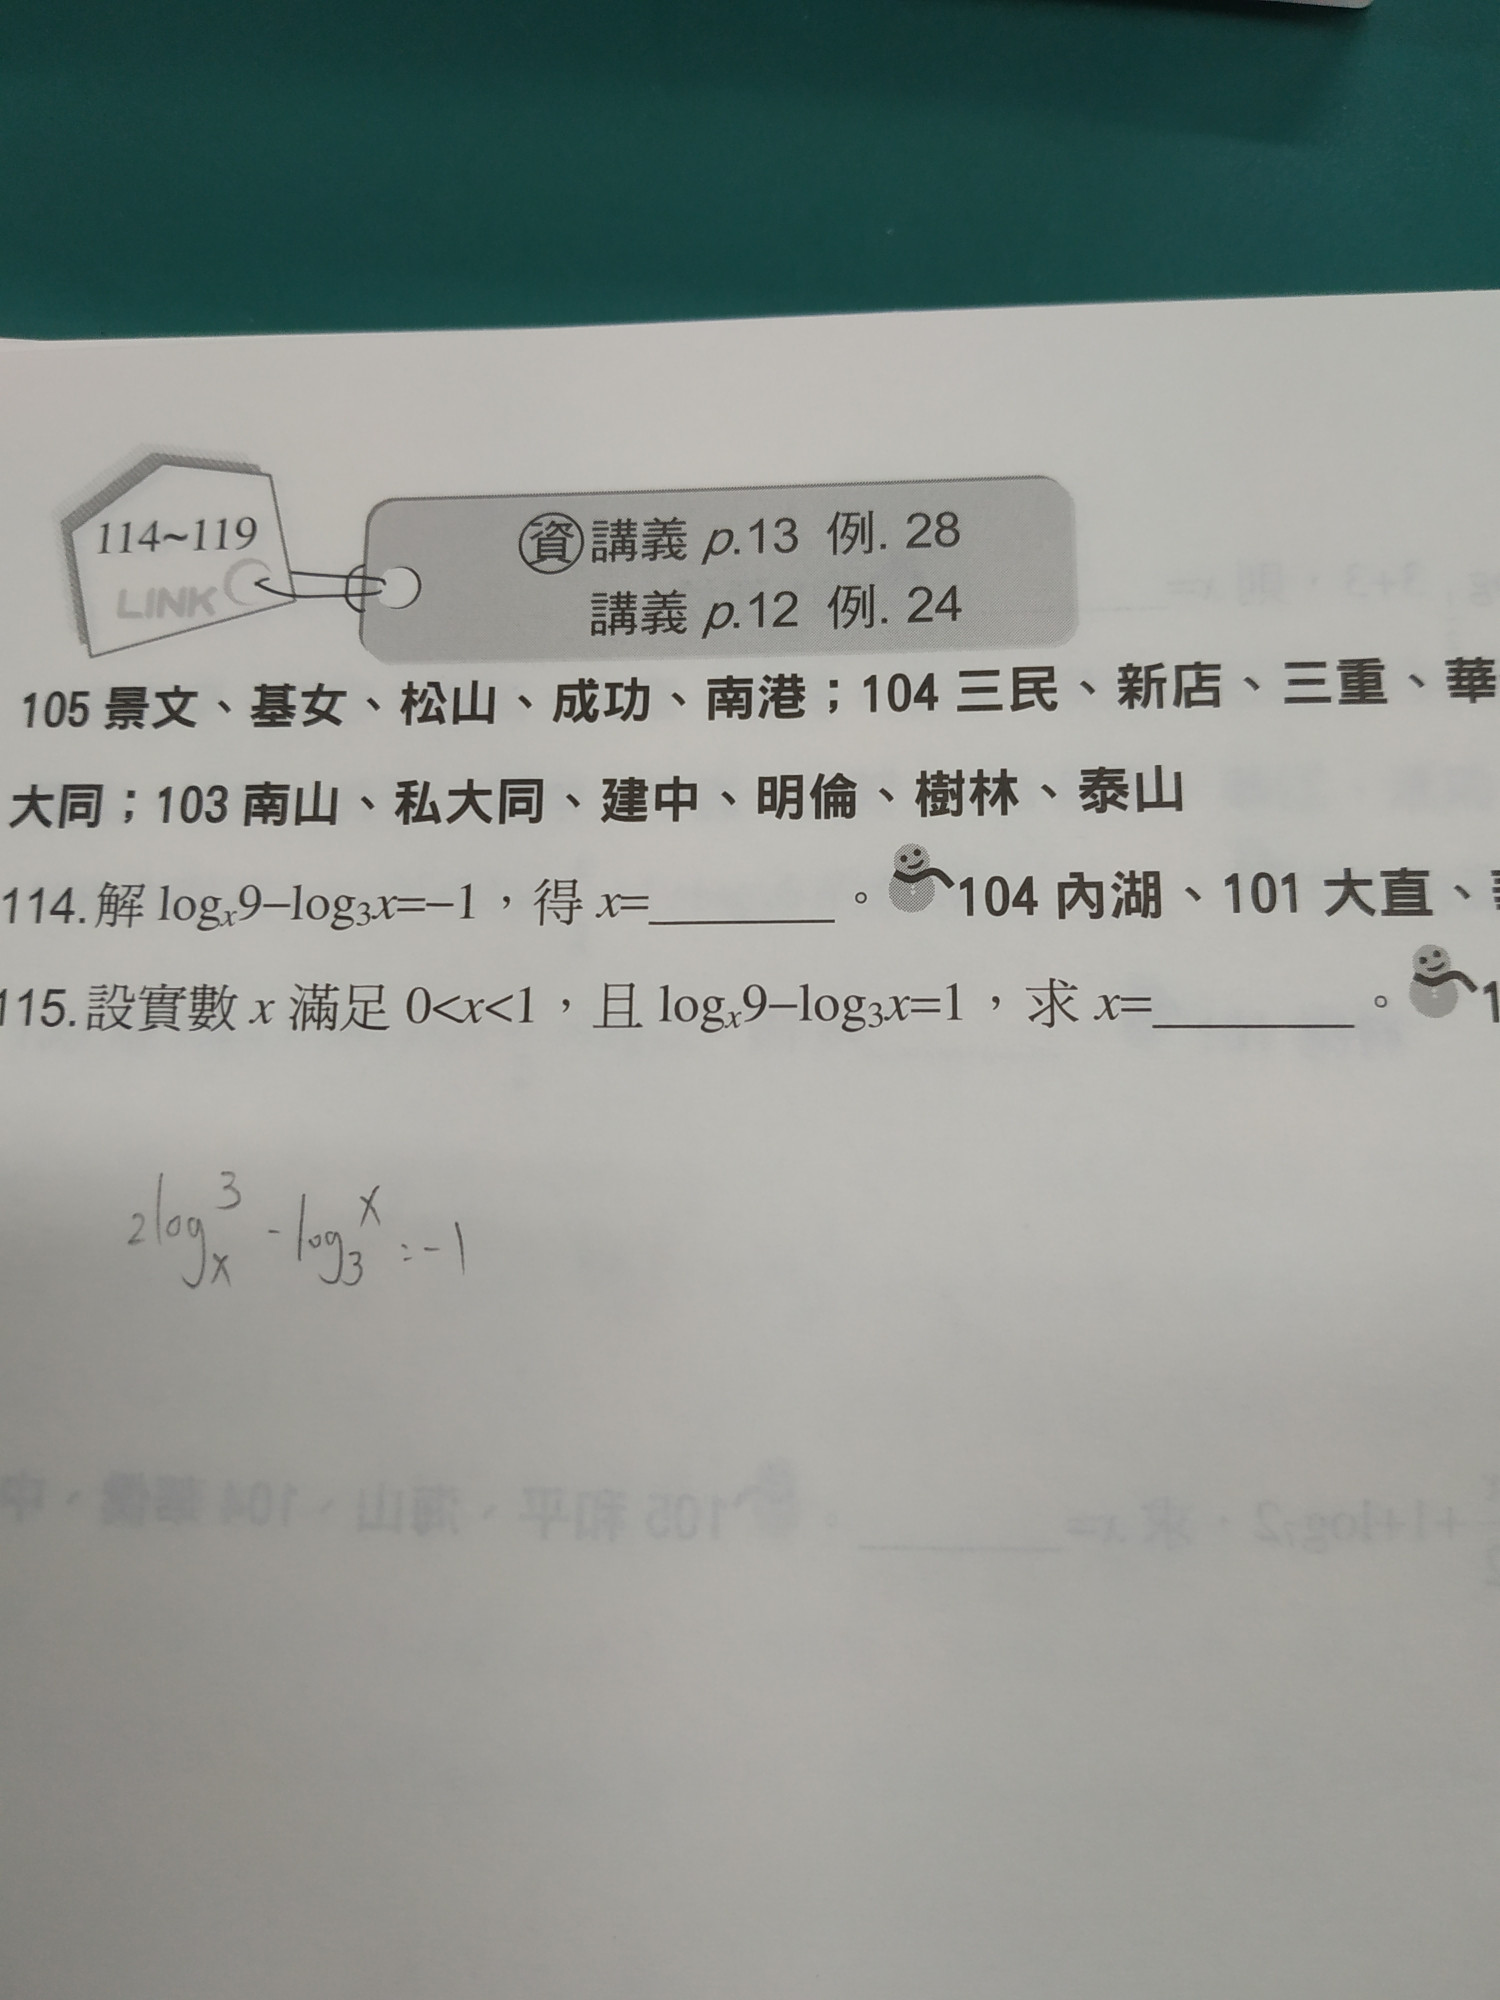 114~119
LINK
資 講義 p.13 例. 28
講義 p.12 例. 24
105 景文、基女、松山、成功、南港；104 三民、新店、三重、華
大同；103 南山、私大同、建中、明倫、樹林、泰山
114. 解 logₓ9−log₃x=−1，得 x=________。104 內湖、101 大直、
115. 設實數 x 滿足 0<x<1，且 logₓ9−log₃x=1，求 x=________。1
2logₓ3 - log₃x = -1